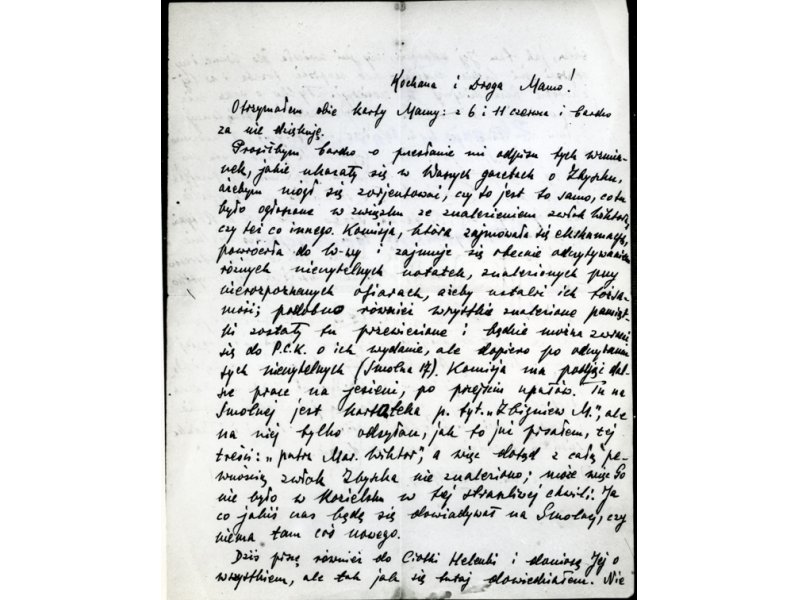 Kochana i Droga Mamo!
Otrzymałem obie karty Mamy: z 6 i 11 czerwca i bardzo
za nie dziękuję.
Prosiłbym bardzo o przesłanie mi odpisu tych wzmia-
nek, jakie ukazały się w Waszych gazetach o Zbyszku,
ażebym mógł się zorjentować, czy to jest to samo, co tu
było ogłoszone w związku ze znalezieniem zwłok Wiktora,
czy też co innego. Komisja, która zajmowała się ekshumacją,
powróciła do W-wy i zajmuje się obecnie odczytywaniem
różnych nieczytelnych notatek, znalezionych przy
nierozpoznanych ofiarach, ażeby ustalić ich tożsa-
mość; podobno również wszystkie znalezione pamiąt-
ki zostały tu przewiezione i będzie można zwrócić
się do P.C.K. o ich wydanie, ale dopiero po odczytaniu
tych nieczytelnych (Smolna 17). Komisja ma podjąć dal-
sze prace na jesieni, po przejściu upałów. Tu na
Smolnej jest kartoteka p. tyt. „Zbigniew M.", ale
na niej tylko odsyłacz, jak to już pisałem, tej
treści: „patrz Mar. Wiktor", a więc dotąd z całą pe-
wnością zwłok Zbyszka nie znaleziono; może więc Go
nie było w Kozielsku w tej straszliwej chwili. Ja
co jakiś czas będę się dowiadywał na Smolnej, czy
niema tam coś nowego.
Dziś piszę również do Ciotki Helenki i donoszę Jej o
wszystkiem, ale tak jak się tutaj dowiedziałem. Nie